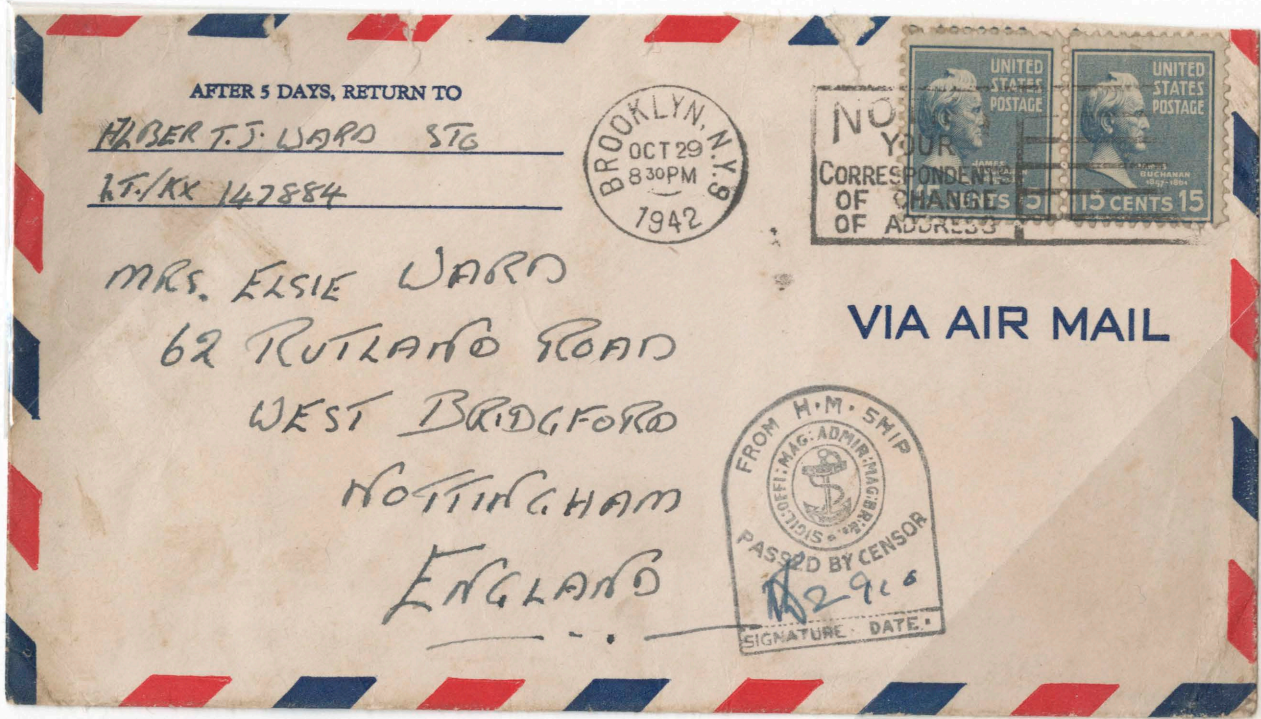 AFTER 5 DAYS, RETURN TO
ALBER T.J. WARD STG
LT./KX 147884
BROOKLYN, N.Y. 9
OCT 29
8 30 PM
1942
YOUR
CORRESPONDENTS
OF CHANGE
OF ADDRESS
UNITED
STATES
POSTAGE
JAMES
UNITED
STATES
POSTAGE
JAMES
BUCHANAN
15 CENTS 15
VIA AIR MAIL
MRS. ELSIE WARD
62 RUTLAND ROAD
WEST BRIDGFORD
NOTTINGHAM
ENGLAND
FROM H·M· SHIP
SIGIL:OFFI:MAG:ADMIR:MAG:BR:&
PASSED BY CENSOR
SIGNATURE· DATE·